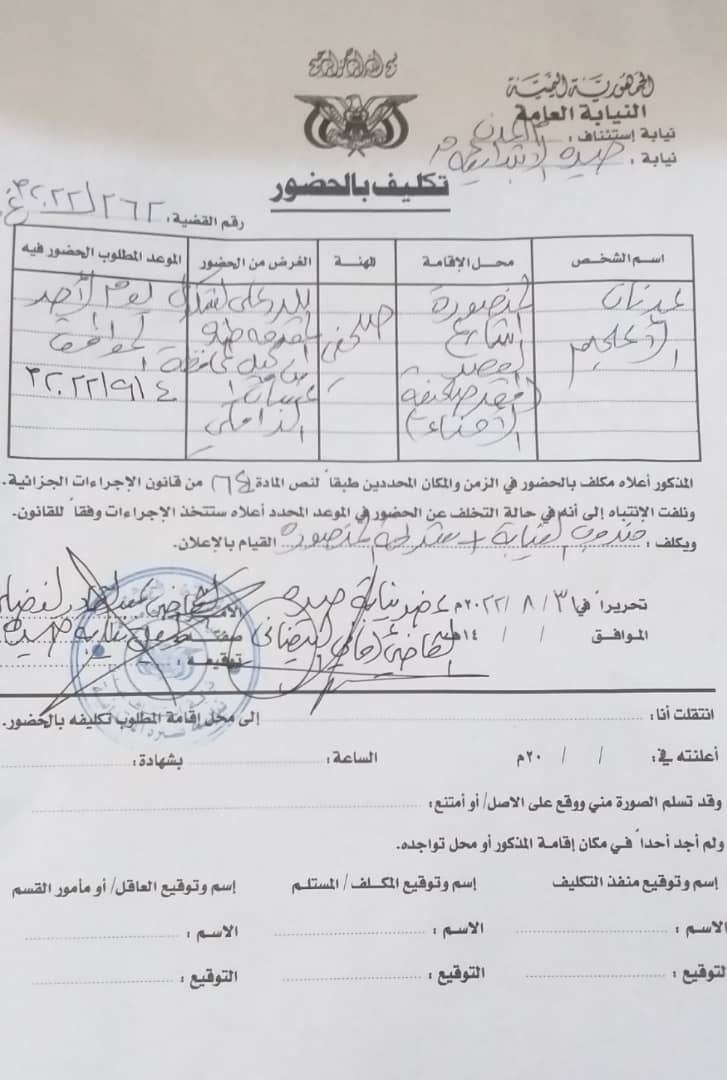 بسم الله الرحمن الرحيم
الجمهورية اليمنية
النيابة العامة
نيابة إستئناف : م/عدن
نيابة : صيره الابتدائية
تكليف بالحضور
رقم القضية: ٢٦٢/٢٠٢٢م
اسم الشخص محل الإقامة المهنة الغرض من الحضور الموعد المطلوب الحضور فيه
عدنان المنصورة صحفي للرد على يوم الأحد
الأعجم الموافق
٢٠٢٢/٩/٤م
المذكور أعلاه مكلف بالحضور في الزمن والمكان المحددين طبقاً لنص المادة ٦٤ من قانون الإجراءات الجزائية.
ونلفت الإنتباه إلى أنه في حالة التخلف عن الحضور في الموعد المحدد أعلاه ستتخذ الإجراءات وفقاً للقانون.
ويكلف : مندوب النيابة + شرطة المنصورة القيام بالإعلان.
تحريراً في ٣/ ٨/ ٢٠٢٢م عضو نيابة صيره
الموافق / / ١٤هـ القاضي
توقيعه :
انتقلت أنا: إلى محل إقامة المطلوب تكليفه بالحضور.
أعلنته في: / / ٢٠م الساعة: بشهادة:
وقد تسلم الصورة مني ووقع على الاصل/ أو أمتنع:
ولم أجد أحداً في مكان إقامة المذكور أو محل تواجده.
إسم وتوقيع منفذ التكليف إسم وتوقيع المكلف/ المستلم إسم وتوقيع العاقل/ أو مأمور القسم
الاسم : الاسم : الاسم :
التوقيع : التوقيع : التوقيع :